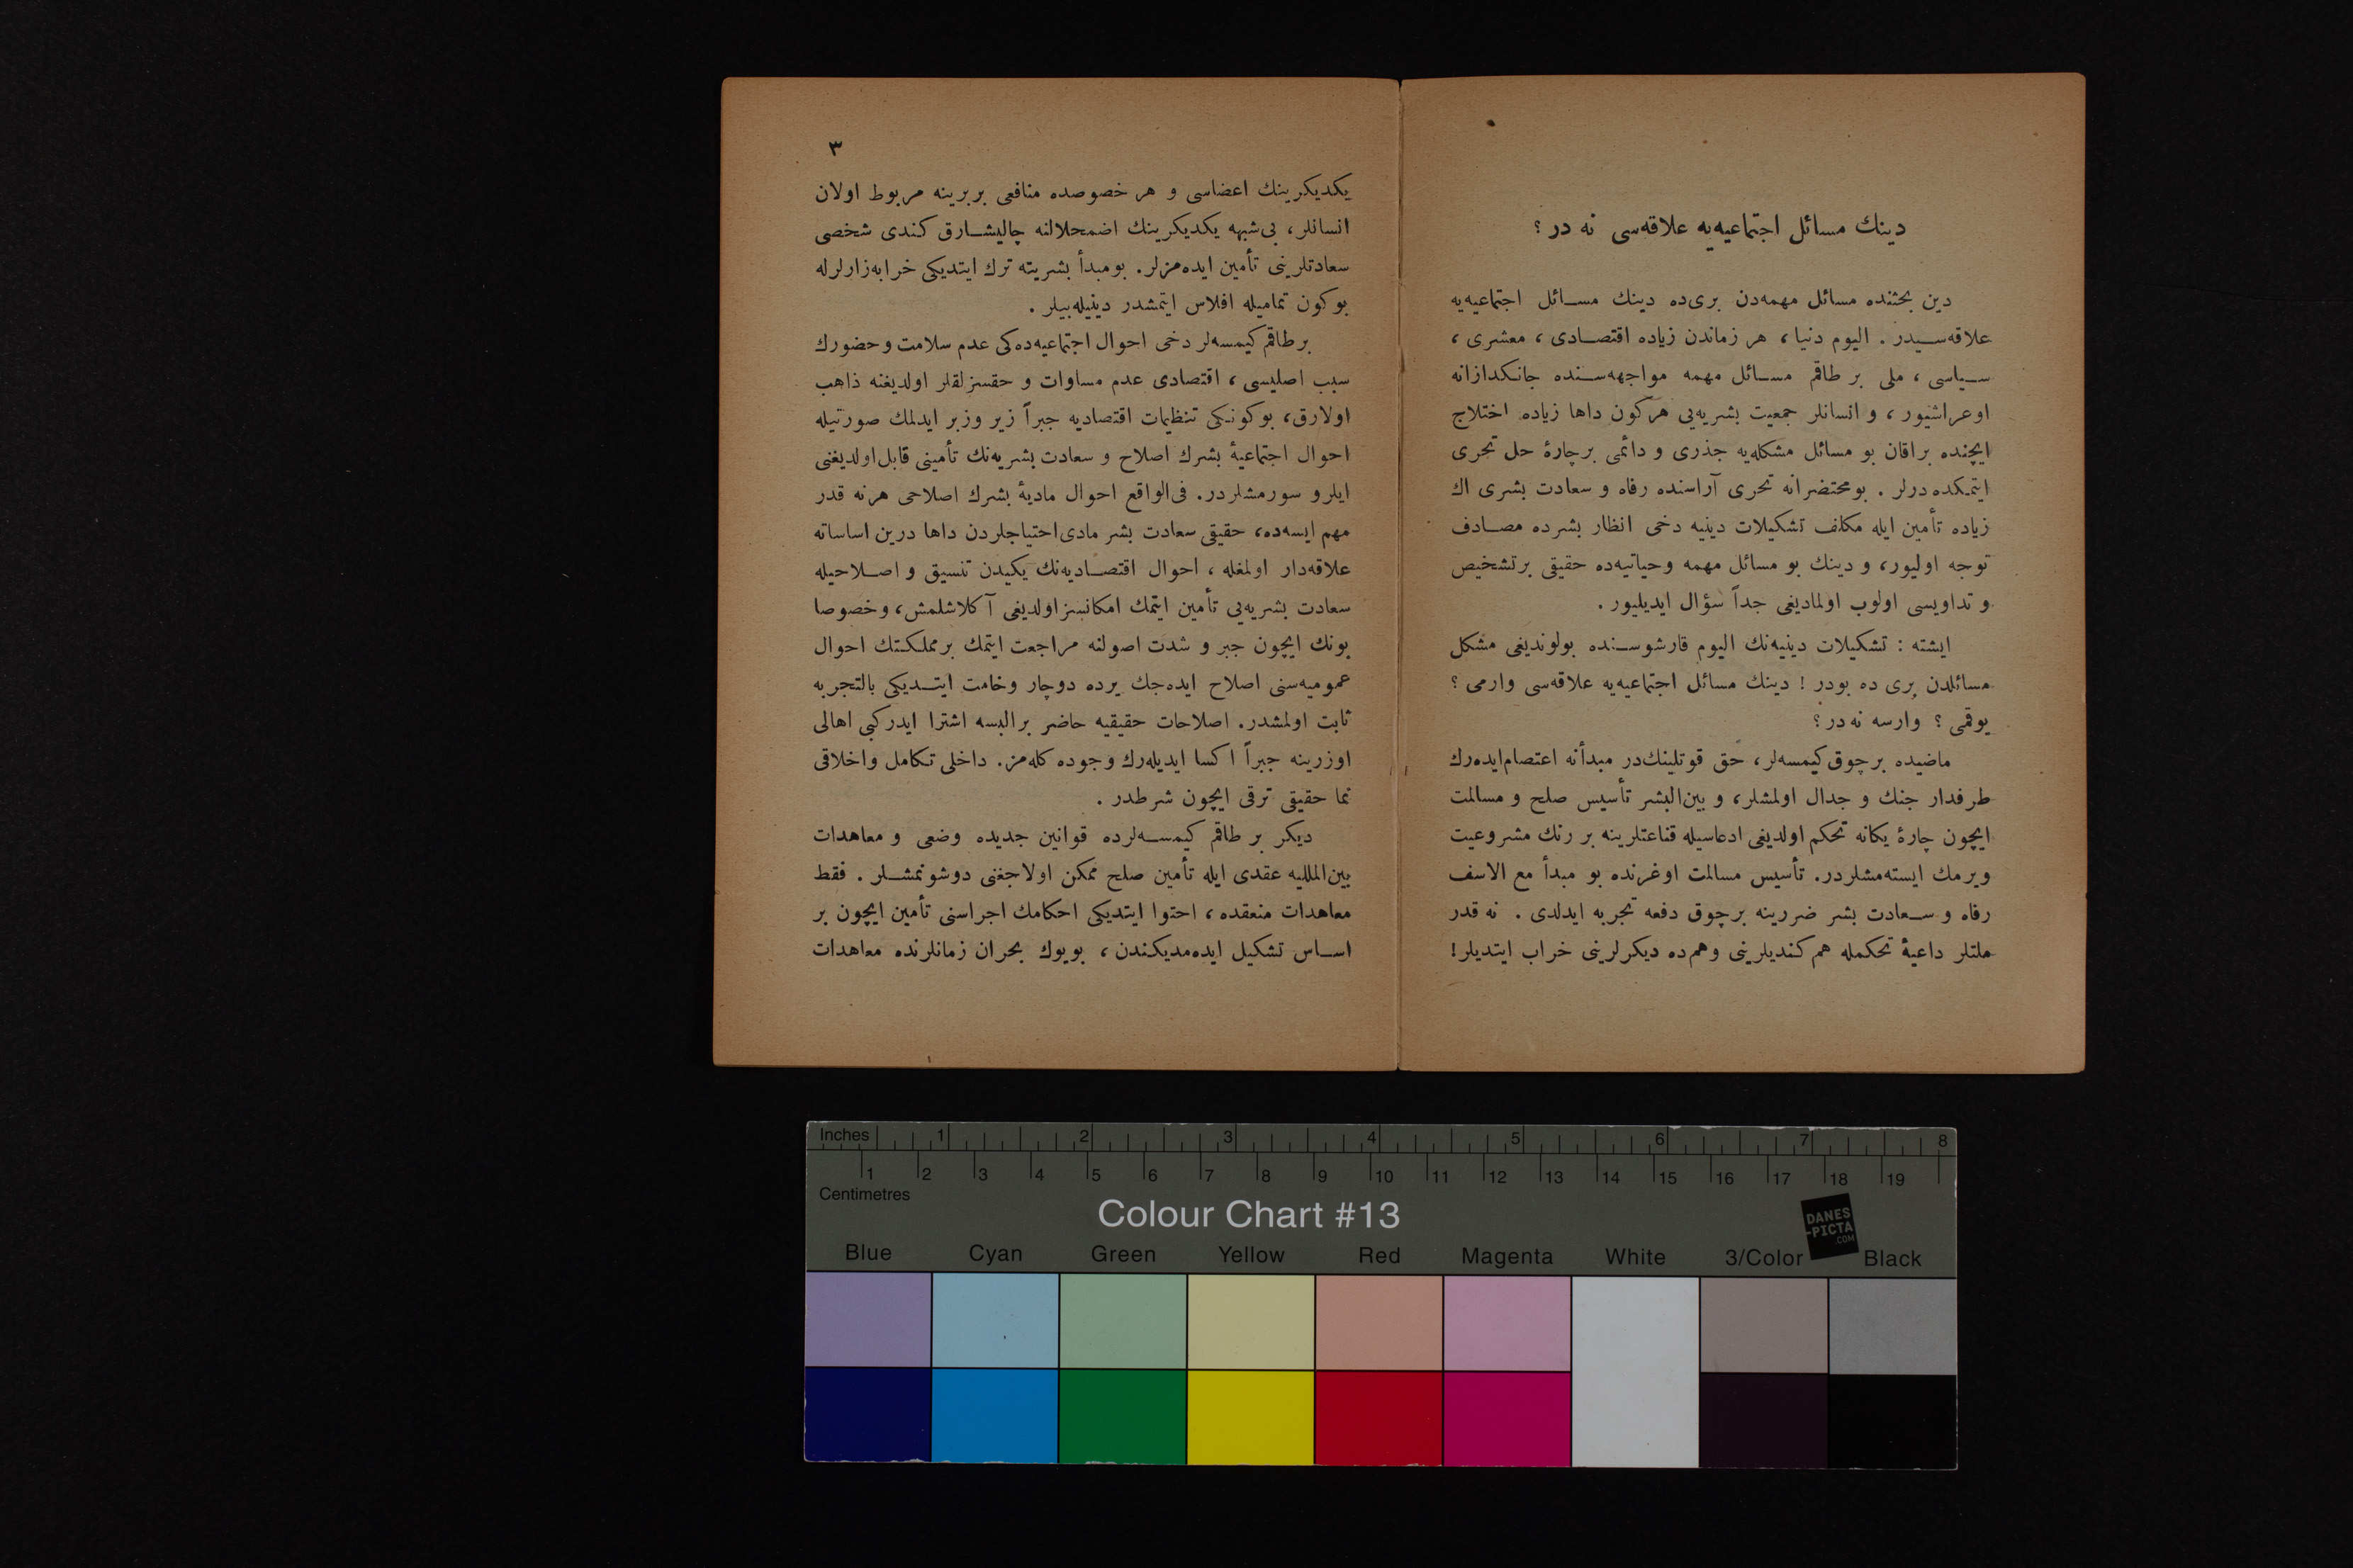 دينك مسائل اجتماعيه‌يه علاقه‌سى نه در ؟
دين بحثنده مسائل مهمه‌دن برى‌ده دينك مســائل اجتماعيه‌يه
علاقه‌ســيدر . اليوم دنيا، هر زماندن زياده اقتصــادى ، معشرى ،
ســياسى ، ملى بر طاقم مســائل مهمه مواجهه‌ســنده جانكدازانه
اوغراشيور ، و انسانلر جمعيت بشريه‌يى هركون داها زياده اختلاج
ايچنده براقان بو مسائل مشكله‌يه جذرى و دائمى برچارهٔ حل تحرى
ايتمكده درلر . بومحتضرانه تحرى آراسنده رفاه و سعادت بشرى اك
زياده تأمين ايله مكلف تشكيلات دينيه دخى انظار بشرده مصــادف
توجه اوليور، و دينك بو مسائل مهمه وحياتيه‌ده حقيقى برتشخيص
و تداويسى اولوب اولماديغى جداً سؤال ايديليور .
ايشته : تشكيلات دينيه‌نك اليوم قارشوســنده بولونديغى مشكل
مسائلدن برى ده بودر ! دينك مسائل اجتماعيه‌يه علاقه‌سى وارمى ؟
يوقمى ؟ وارسه نه در ؟
ماضيده برچوق كيمسه‌لر، حق قوتلينك‌در مبدأنه اعتصام‌ايده‌رك
طرفدار جنك و جدال اولمشلر، و بين‌البشر تأسيس صلح و مسالمت
ايچون چارهٔ يكانه تحكم اولديغى ادعاسيله قناعتلرينه بر رنك مشروعيت
ويرمك ايسته‌مشلردر. تأسيس مسالمت اوغرنده بو مبدأ مع الاسف
رفاه و ســعادت بشر ضررينه برچوق دفعه تجربه ايدلدى . نه قدر
ملتلر داعيهٔ تحكمله هم كنديلرينى وهم‌ده ديكرلرينى خراب ايتديلر!
٣
يكديكرينك اعضاسى و هر خصوصده منافعى بربرينه مربوط اولان
انسانلر، بى‌شبهه يكديكرينك اضمحلالنه چاليشــارق كندى شخصى
سعادتلرينى تأمين ايده‌مزلر. بومبدأ بشريته ترك ايتديكى خرابه‌زارلرله
بوكون تماميله افلاس ايتمشدر دينيله‌بيلر .
برطاقم كيمسه‌لر دخى احوال اجتماعيه‌ده‌كى عدم سلامت وحضورك
سبب اصليسى ، اقتصادى عدم مساوات و حقسزلقلر اولديغنه ذاهب
اولارق، بوكونكى تنظيمات اقتصاديه جبراً زير وزبر ايدلمك صورتيله
احوال اجتماعيهٔ بشرك اصلاح و سعادت بشريه‌نك تأمينى قابل‌اولديغنى
ايلرو سورمشلردر. فى‌الواقع احوال ماديهٔ بشرك اصلاحى هرنه قدر
مهم ايسه‌ده، حقيقى سعادت بشر مادى‌احتياجلردن داها درين اساساته
علاقه‌دار اولمغله ، احوال اقتصــاديه‌نك يكيدن تنسيق و اصــلاحيله
سعادت بشريه‌يى تأمين ايتمك امكانسزاولديغى آكلاشلمش، وخصوصا
بونك ايچون جبر و شدت اصولنه مراجعت ايتمك برمملكتك احوال
عموميه‌سنى اصلاح ايده‌جك يرده دوچار وخامت ايتــديكى بالتجربه
ثابت اولمشدر. اصلاحات حقيقيه حاضر برالبسه اشترا ايدركبى اهالى
اوزرينه جبراً اكسا ايديله‌رك وجوده كله‌مز. داخلى تكامل واخلاقى
نما حقيقى ترقى ايچون شرطدر .
ديكر بر طاقم كيمســه‌لرده قوانين جديده وضعى و معاهدات
بين‌الملليه عقدى ايله تأمين صلح ممكن اولاجغنى دوشونمشــلر . فقط
معاهدات منعقده ، احتوا ايتديكى احكامك اجراسنى تأمين ايچون بر
اســاس تشكيل ايده‌مديكندن ، بويوك بحران زمانلرنده معاهدات
Inches 1 2 3 4 5 6 7 8
1 2 3 4 5 6 7 8 9 10 11 12 13 14 15 16 17 18 19
Centimetres
Colour Chart #13
DANES
-PICTA
.COM
Blue Cyan Green Yellow Red Magenta White 3/Color Black